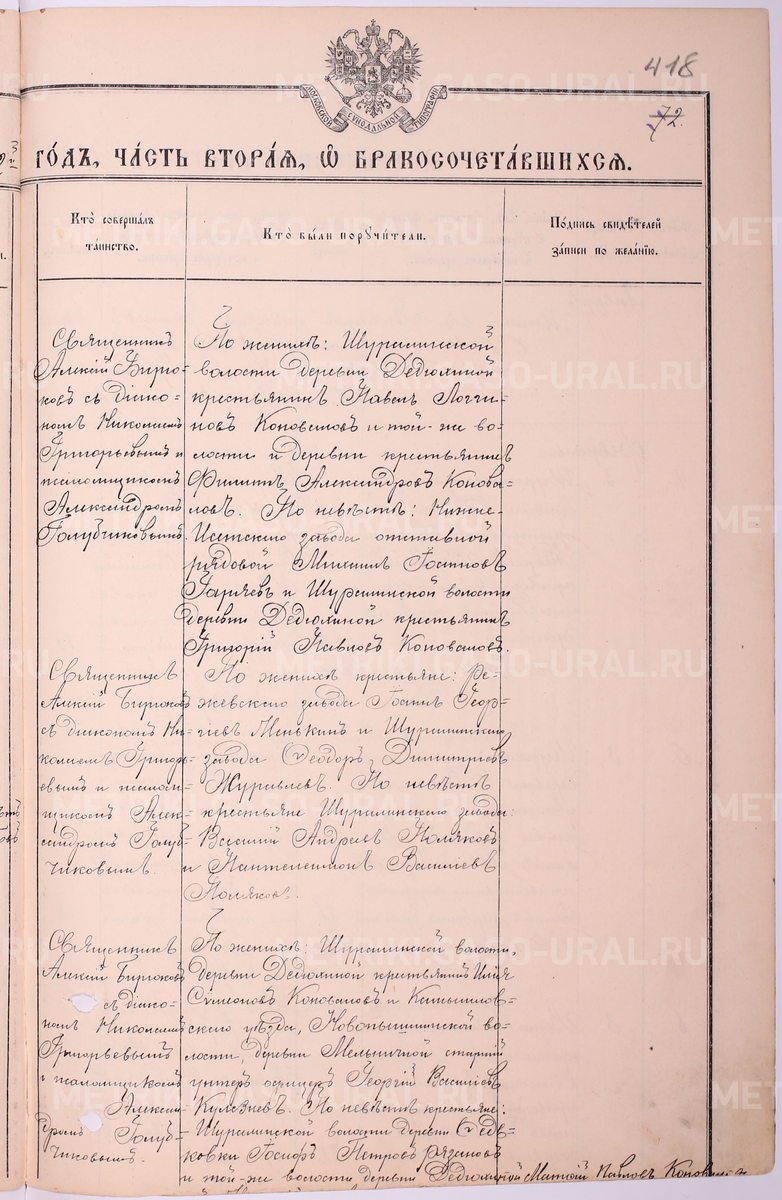 418
72.
МОСКОВСКОЙ СѴНОДАЛЬНОЙ ТИПОГРАФІИ
го́дъ, ча́сть втора́я, ѡ҆ бракосочета́вшихся.
Кто̀ соверша́лъ
та́инство.
Кто̀ бы́ли порꙋчи́тели.
По́дпись свидѣ́телей
за́писи по жела́нію.
Священникъ
Алексій Бирю-
ковъ съ діако-
номъ Николаемъ
Григорьевымъ и
псаломщикомъ
Александромъ
Голубчиковымъ.
По женихѣ: Шуралинской
волости деревни Дедюлиной
крестьянинъ Павелъ Логги-
новъ Коноваловъ и той-же во-
лости и деревни крестьянинъ
Филиппъ Александровъ Конова-
ловъ. По невѣстѣ: Нижне-
Исетскаго завода отставной
рядовой Михаилъ Іоанновъ
Гаряевъ и Шуралинской волости
деревни Дедюлиной крестьянинъ
Григорій Павловъ Коноваловъ.
Священникъ
Алексій Бирюковъ
съ діакономъ Ни-
колаемъ Григорь-
евымъ и псалом-
щикомъ Алек-
сандромъ Голуб-
чиковымъ.
По женихѣ крестьяне: Ре-
жевскаго завода Іоаннъ Геор-
гіевъ Менькинъ и Шуралинскаго
завода Ѳеодоръ Димитріевъ
Журавлевъ. По невѣстѣ
крестьяне Шуралинскаго завода:
Василій Андреевъ Поляковъ
и Пантелеимонъ Василіевъ
Поляковъ.
Священникъ
Алексій Бирюковъ
съ діако-
номъ Николаемъ
Григорьевымъ
и псаломщикомъ
Алексан-
дромъ Голуб-
чиковымъ.
По женихѣ: Шуралинской волости,
деревни Дедюлиной крестьянинъ Илія
Симеоновъ Коноваловъ и Камышлов-
скаго уѣзда, Новопышминской во-
лости, деревни Мельничной старшій
унтеръ офицеръ Георгій Василіевъ
По невѣстѣ крестьяне:
Шуралинской волости деревни
Іосифъ Петровъ Рязановъ
и той-же волости деревни Дедюлиной Матѳій Павловъ Коноваловъ
METRIKI.GASO-URAL.RU